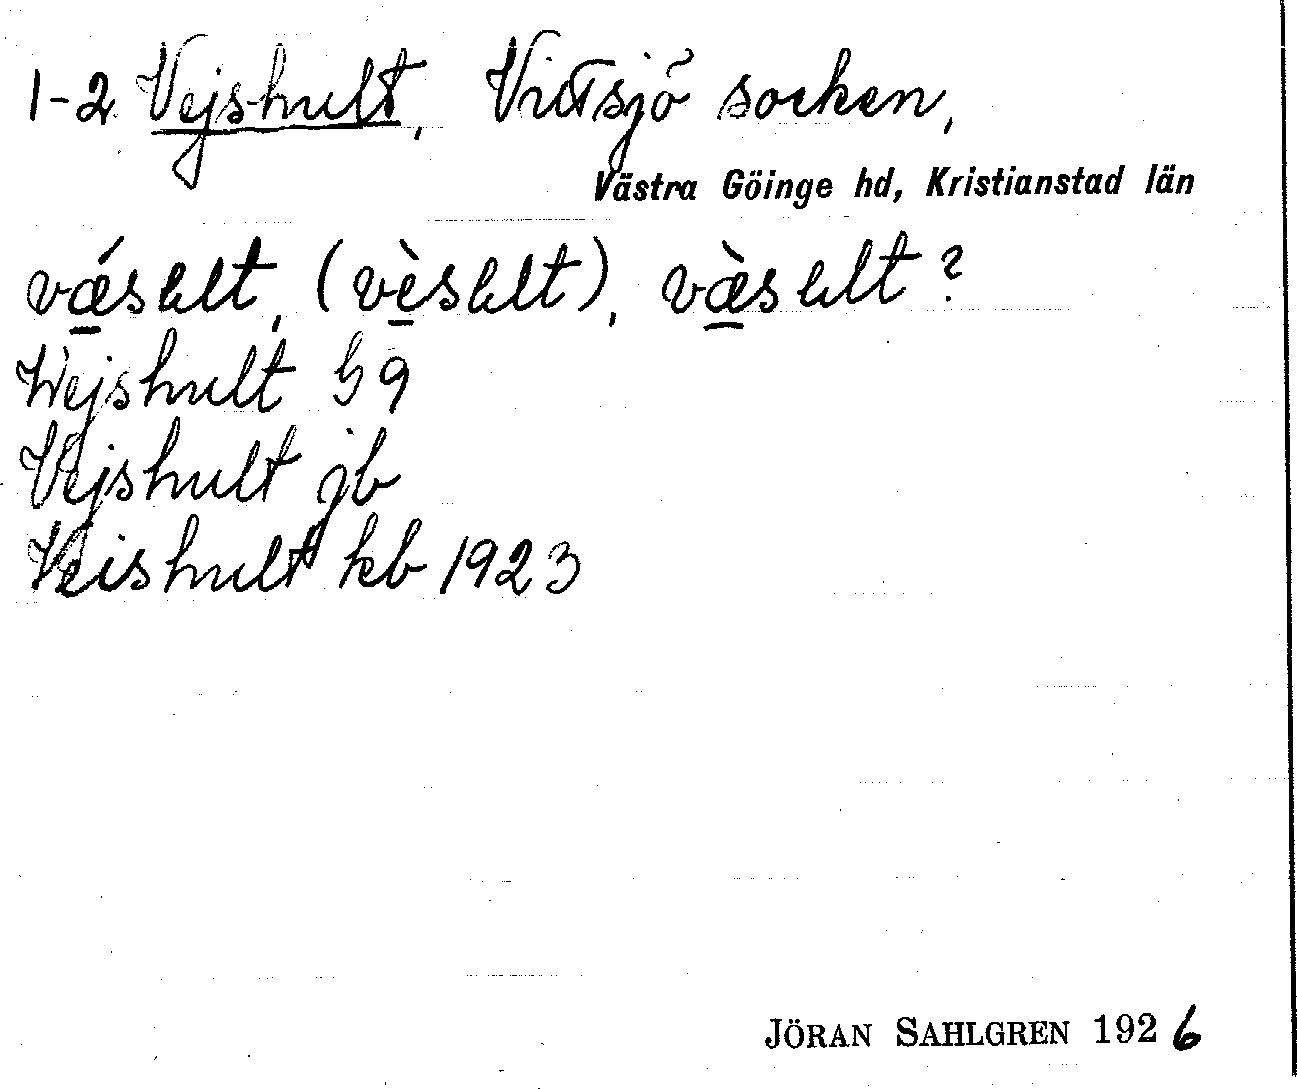 1-2 Vejshult, Vittsjö socken,
Västra Göinge hd, Kristianstad län
vǽsult, (vèsult), væ̀sult?
Wejshult G 9
Vejshult jb
Veishult kb 1923
JÖRAN SAHLGREN 1926